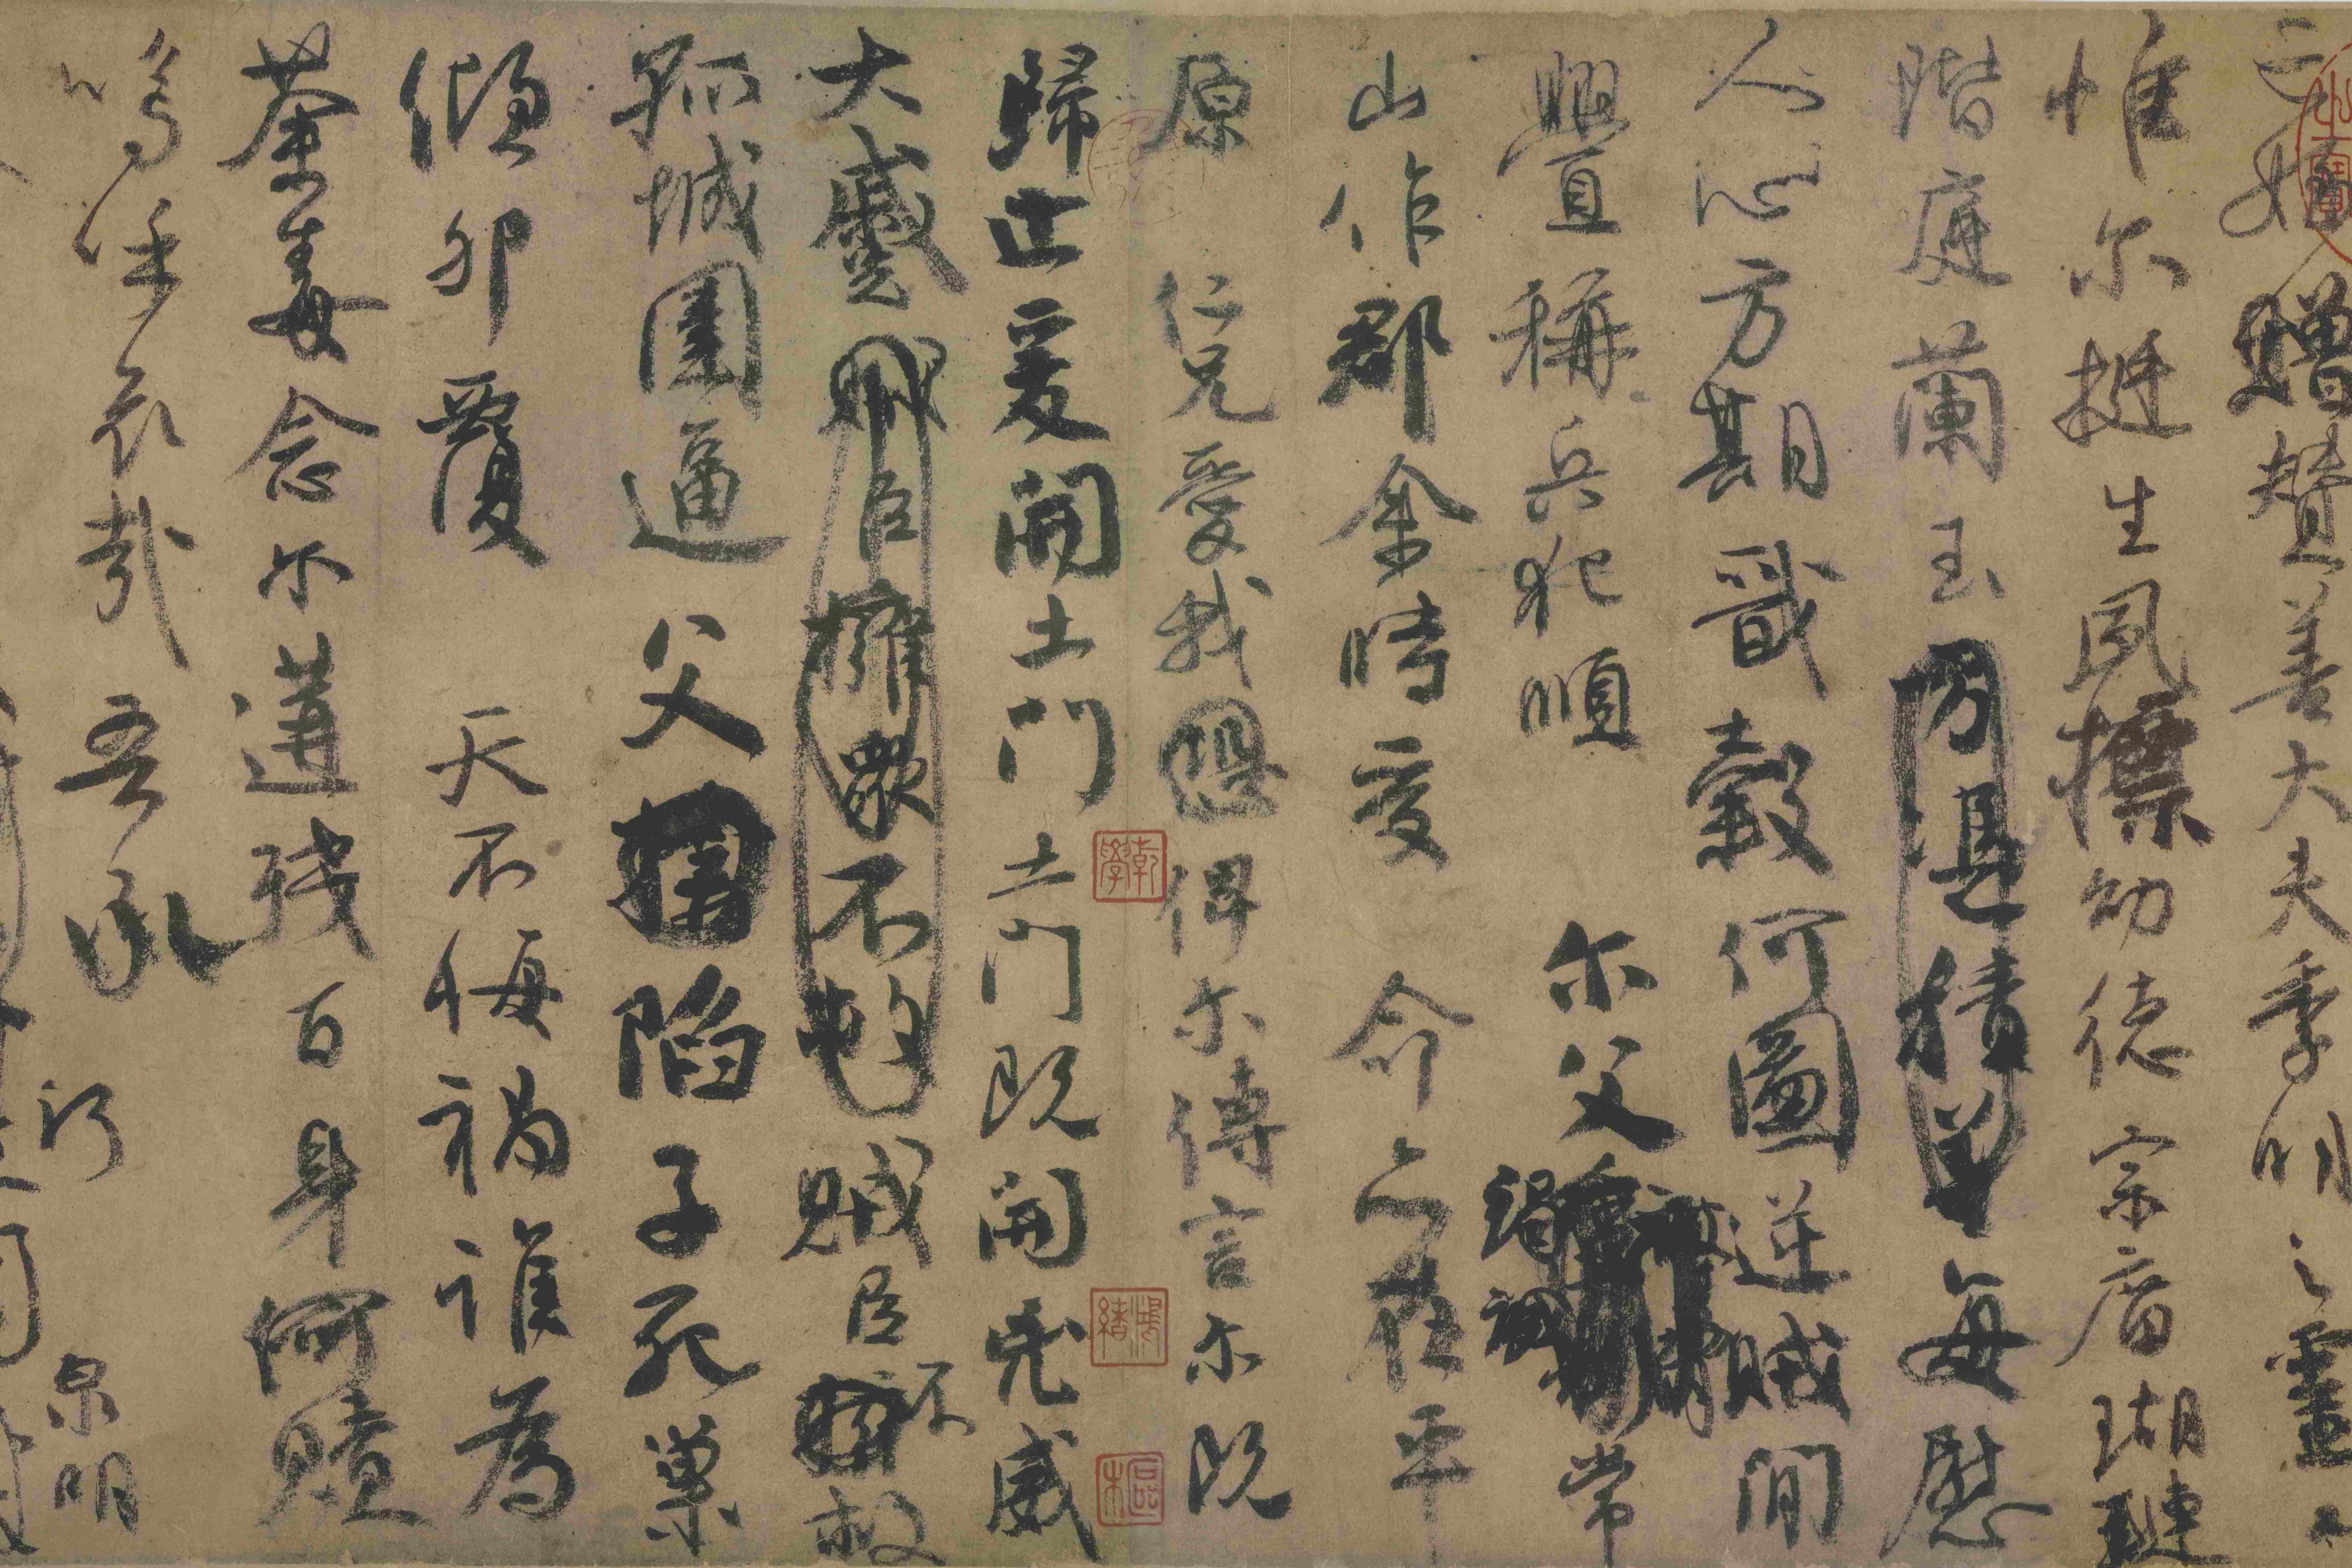 亡姪贈贊善大夫季明之靈曰
惟尔挺生夙標幼德宗廟瑚璉
階庭蘭玉方憑積善每慰
人心方期戩穀何圖逆賊間
釁稱兵犯順尔父竭誠常
山作郡余時受命亦在平
原仁兄愛我恐俾尔傳言尔既
歸止爰開土門土門既開凶威
大蹙賊臣擁衆不救賊臣不擁救
孤城圍逼父擒陷子死巢
傾卵覆天不悔禍誰為
荼毒念尔遘殘百身何贖
嗚呼哀哉吾承
泉明
乾學
鴻緒